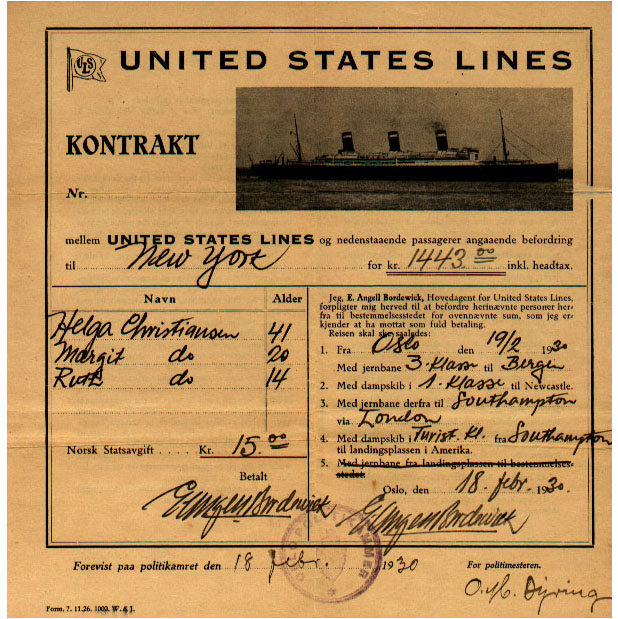 USL
UNITED STATES LINES
KONTRAKT
Nr.
mellem UNITED STATES LINES og nedenstaaende passagerer angaaende befordring
til New York for kr. 1443.00 inkl. headtax.
Navn Alder
Helga Christiansen 41
Margit do 20
Ruth do 14
Norsk Statsavgift ..... Kr. 15.00
Betalt
E Angell Bordewick
Jeg, E. Angell Bordewick, Hovedagent for United States Lines,
forpligter mig herved til at befordre herinævnte personer her-
fra til bestemmelsesstedet for ovennævnte sum, som jeg er-
kjender at ha mottat som fuld betaling.
Reisen skal ske saaledes:
1. Fra Oslo den 19/2 1930
Med jernbane 3. Klasse til Bergen
2. Med dampskib i 1. Klasse til Newcastle.
3. Med jernbane derfra til Southampton
via London
4. Med dampskib i Turist. Kl. fra Southampton
til landingsplassen i Amerika.
5. Med jernbane fra landingsplassen til bestemmelses-
stedet.
Oslo, den 18. febr. 1930.
E Angell Bordewick
Forevist paa politikamret den 18 febr. 1930
For politimesteren.
Form. 7. 11.26. 1000. W. & J.